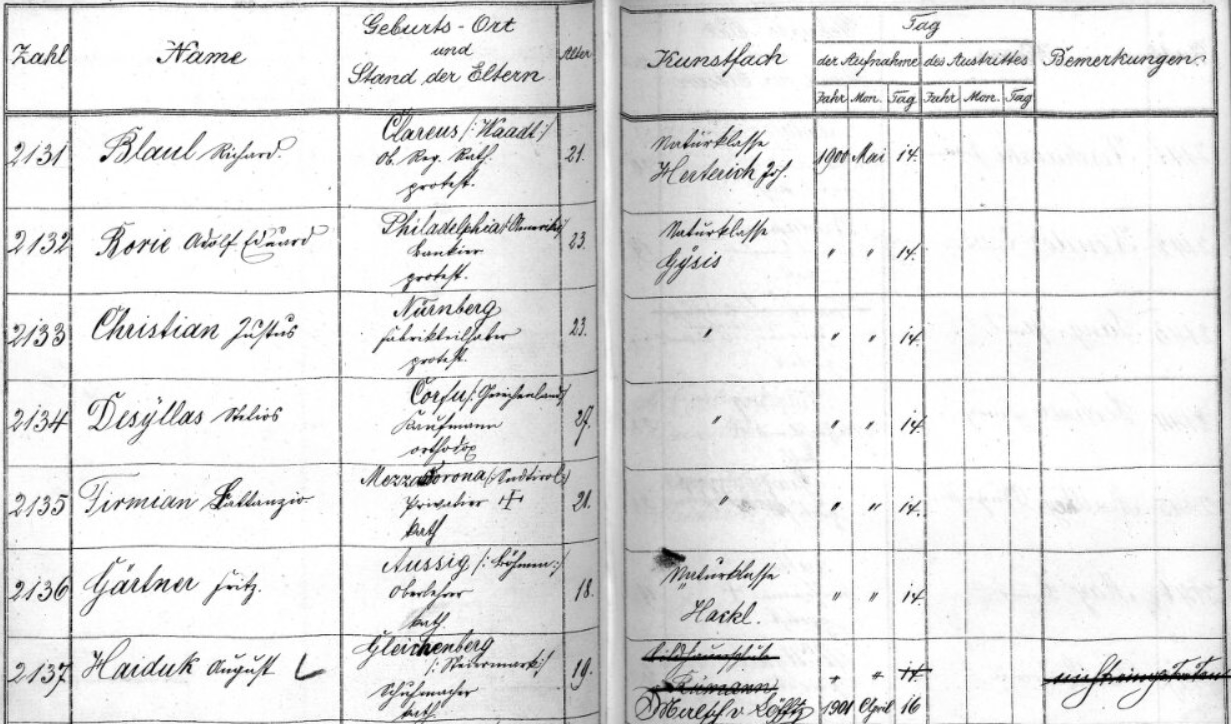 Zahl Name Geburts-Ort und Stand der Eltern Alter Kunstfach Tag Bemerkungen
der Aufnahme des Austrittes
Jahr Mon. Tag Jahr Mon. Tag
2131 Blaul Richard. Clarens /: Waadt :/ 21. Naturklasse 1900 Mai 14.
Ob. Reg. Rath. Herterich Joh.
protest.
2132 Borie Adolf Eduard Philadelphia /: Amerika :/ 23. Naturklasse " " 14.
Bankier Gysis
protest.
2133 Christian Justus Nürnberg 23. " " " 14.
Fabrikteilhaber
protest.
2134 Desÿllas Corfu /: Griechenland 27. " " " 14.
Kaufmann
orthodox
2135 Firmian Lattanzio Mezzocorona /: Südtirol :/ 21. " " " 14.
Privatier †
kath
2136 Gärtner Fritz. Aussig /: Böhmen :/ 18. Naturklasse " " 14.
Oberlehrer Hackl.
kath.
2137 Haiduk August Gleichenberg 19. Bildhauerschule " " 14.
/: Steiermark :/ Rümann
Schuhmacher Malsch. v. Löfftz 1901 April 16
kath. nicht eingetreten